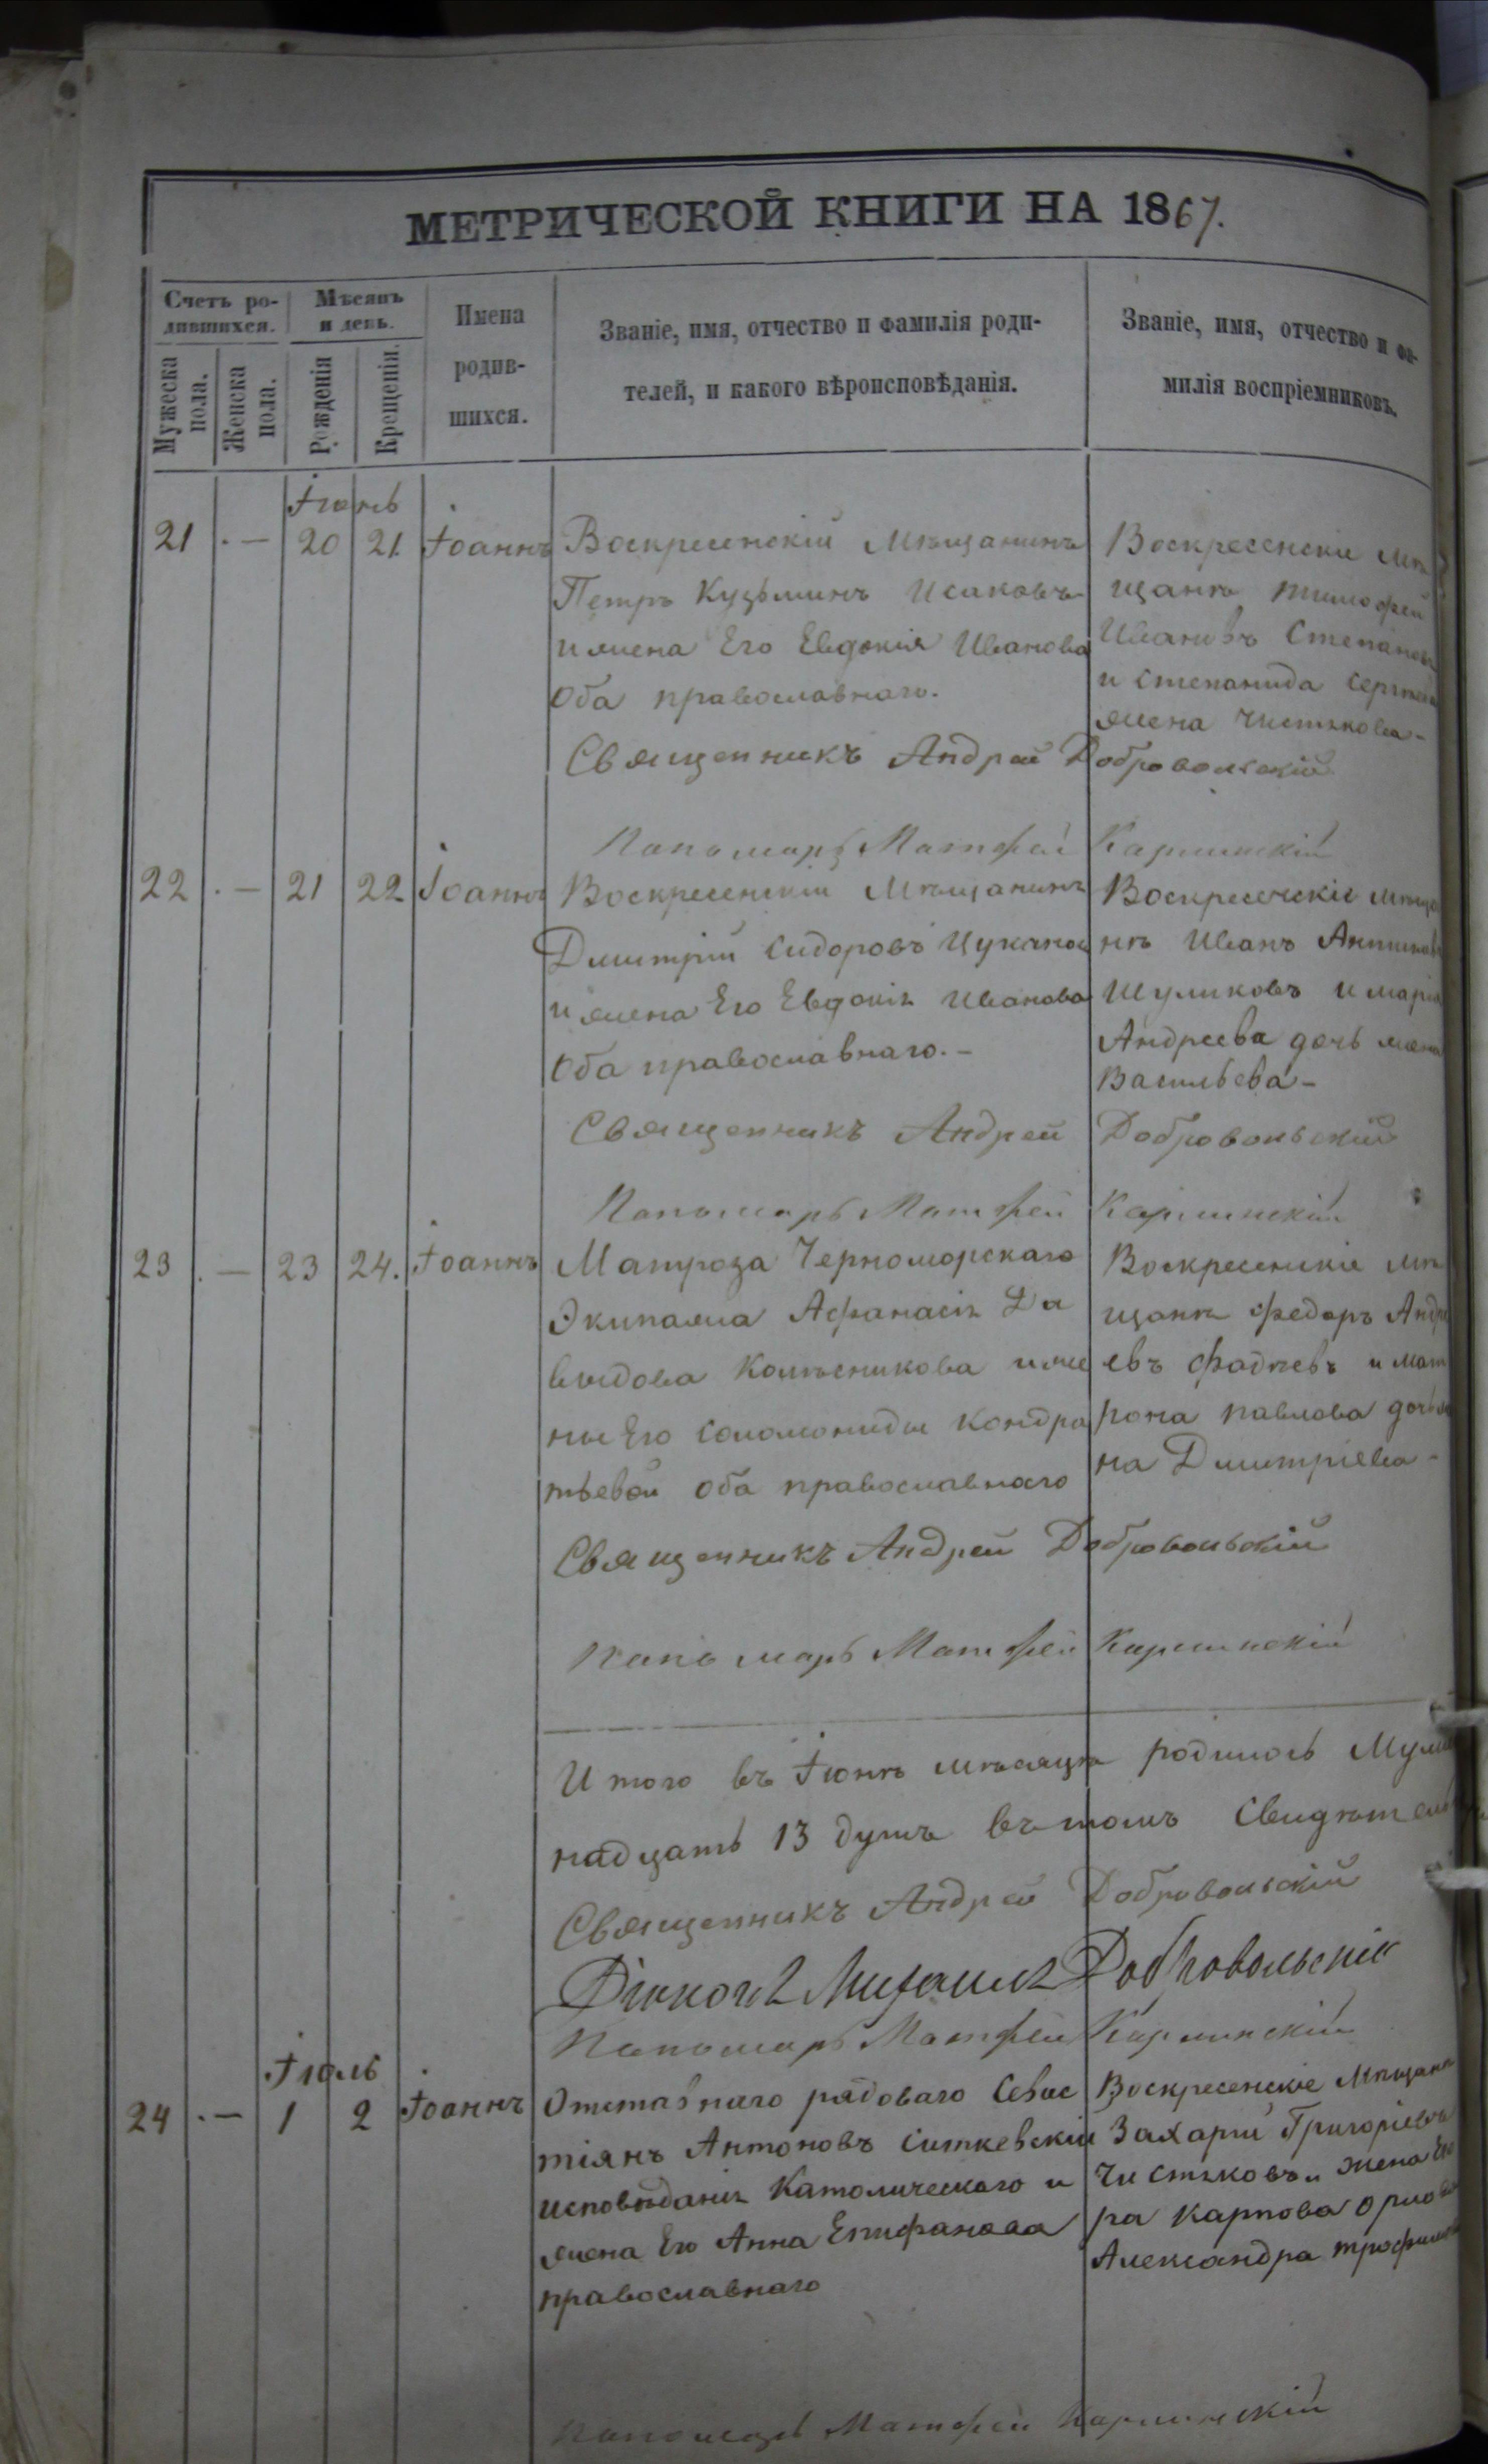 МЕТРИЧЕСКОЙ КНИГИ НА 1867.
Счетъ ро-
дившихся.
Мѣсяцъ
и день.
Имена
родив-
шихся.
Званіе, имя, отчество и фамилія роди-
телей, и какого вѣроисповѣданія.
Званіе, имя, отчество и фа-
милія воспріемниковъ.
Мужеска
пола.
Женска
пола.
Рожденія
Крещенія.
Іюнь
21 · — 20 21. Іоаннъ
Воскресенскій Мѣщанинъ
Петръ Кузьминъ Исаковъ
и жена Его Евдокія Иванова
Оба православнаго.
Воскресенскіе мѣ
щанѣ Тимофей
Ивановъ Степановъ
и Степанида
жена Чистякова-
Священникъ Андрей Добровольскій
Пономарь Матфей
22 · — 21 22 Іоаннъ
Воскресенскій Мѣщанинъ
Дмитрій Сидоровъ Цуканов
и жена Его Евдокія Иванова
Оба православнаго. -
Воскресенскіе мѣща
нѣ Иванъ
Шуликовъ и марія
Андреева дочь
Васильева -
Священникъ Андрей Добровольскій
Пономарь Матфей
23 . — 23 24. Іоаннъ
Матроза Черноморскаго
Экипажа Афанасія Да
выдова Колѣсникова и же
ны Его Соломониды Кондра
тьевой оба православнаго
Воскресенскіе мѣ
щанѣ Федоръ Андре
евъ Фадѣевъ и мат
рона павлова дочь
на Дмитріева -
Священникъ Андрей Добровольскій
Пономарь Матфей
Итого въ Іюнѣ мѣсяцѣ родилось
надцать 13 душъ въ томъ
Священникъ Андрей Добровольскій
Діаконъ Михаилъ Добровольскій
Пономарь Матфей
Іюль
24 · — 1 2 Іоаннъ
Отставнаго рядоваго Севас
тіянъ Антоновъ Ситкевскій
исповѣданія Католическаго и
жена Его Анна Епифанова
православнаго
Воскресенскіе Мѣщанѣ
Захарій Григоріевъ
Чистяковъ и жена
ра Карпова
Александра
Пономарь Матфей